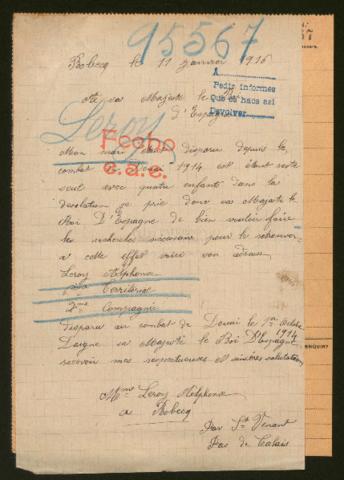 95567
Robecq le 11 janvier 1916
A
Pedir informes
Que se haos asi
Devolver
a sa Majesté le Roi
d'Espagne
Leroy
Fecho
c.a.c.
Mon mari étant disparu depuis le
combat de Douai 1914 et étant restée
seul avec quatre enfants dans la
désolation je prie donc sa Majesté le
Roi D'Espagne de bien vouloir faire
les recherches nécessaire pour le retrouver
a cette effet voici son adresse
Leroy Alphonse
Territorial
2me Compagnie
disparu au combat de Douai le 1er Octobre
1914
Daigne sa Majesté le Roi D'Espagne
recevoir mes respectueuses et sincères salutations
Mme Leroy Alphonse
a Robecq
Par St Venant
Pas de Calais